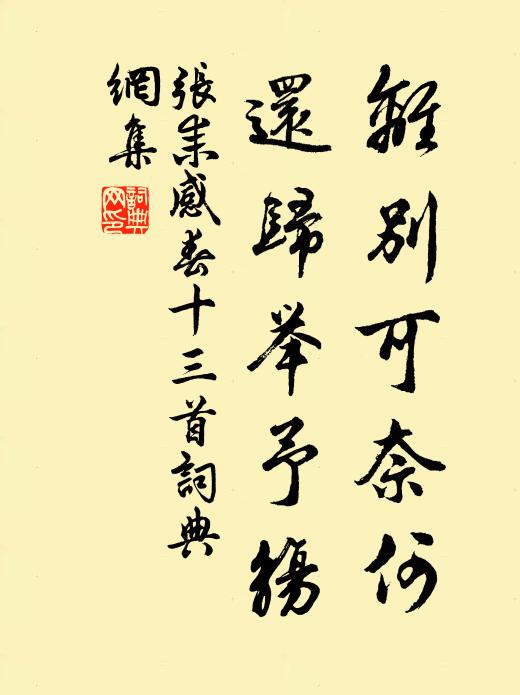 離別可奈何
還歸举予觴
張耒感春十三首詞典
網集
詞典
网印